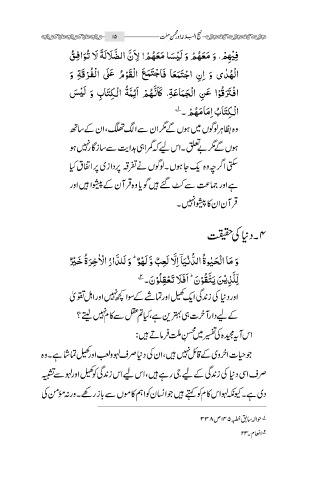 نہج البلاغہ اور محسن ملت
۱۵
فِيْهِمْ، وَ مَعَهُمْ وَ لَيْسَا مَعَهُمْ! لِاَنَّ الضَّلَالَةَ لَا تُوَافِقُ
الْهُدٰى وَ اِنِ اجْتَمَعَا فَاجْتَمَعَ الْقَوْمُ عَلَى الْفُرْقَةِ وَ
افْتَرَقُوْا عَنِ الْجَمَاعَةِ، كَاَنَّهُمْ اَئِمَّةُ الْكِتَابِ وَ لَيْسَ
الْكِتَابُ اِمَامَهُمْ۔ ۱
وہ بظاہر لوگوں میں ہوں گے مگر ان سے الگ تھلگ، ان کے ساتھ
ہوں گے مگر بے تعلق۔ اس لیے کہ گمراہی ہدایت سے سازگار نہیں ہو
سکتی اگرچہ وہ یک جا ہوں۔ لوگوں نے تفرقہ پردازی پر اتفاق کیا
ہے اور جماعت سے کٹ گئے ہیں گویا وہ قرآن کے پیشوا ہیں اور
قرآن ان کا پیشوا نہیں۔
۴۔ دنیا کی حقیقت
وَ مَا الْحَيٰوةُ الدُّنْيَاۤ اِلَّا لَعِبٌ وَّ لَهْوٌ ؕ وَ لَلدَّارُ الْاٰخِرَةُ خَيْرٌ
لِّلَّذِيْنَ يَتَّقُوْنَ ؕ اَفَلَا تَعْقِلُوْنَ۔ ۲
اور دنیا کی زندگی ایک کھیل اور تماشے کے سوا کچھ نہیں اور اہل تقویٰ
کے لیے دار آخرت ہی بہترین ہے، کیا تم عقل سے کام نہیں لیتے؟
اس آیہ مجیدہ کی تفسیر میں محسن ملت فرماتے ہیں:
جو حیات اخروی کے قائل نہیں ہیں، ان کی دنیا صرف لہو و لعب اور کھیل تماشا ہے۔ وہ
صرف اسی دنیا کی زندگی کے لیے جی رہے ہیں، اس لیے اس زندگی کو کھیل اور لہو سے تشبیہ
دی ہے۔ کیونکہ لہو اس کام کو کہتے ہیں جو انسان کو اہم کاموں سے باز رکھے۔ ورنہ مؤمن کی
۱۔ حوالہ سابق خطبہ ۱۳۵ ص ۳۳۸
۲۔ انعام۔ ۲۳